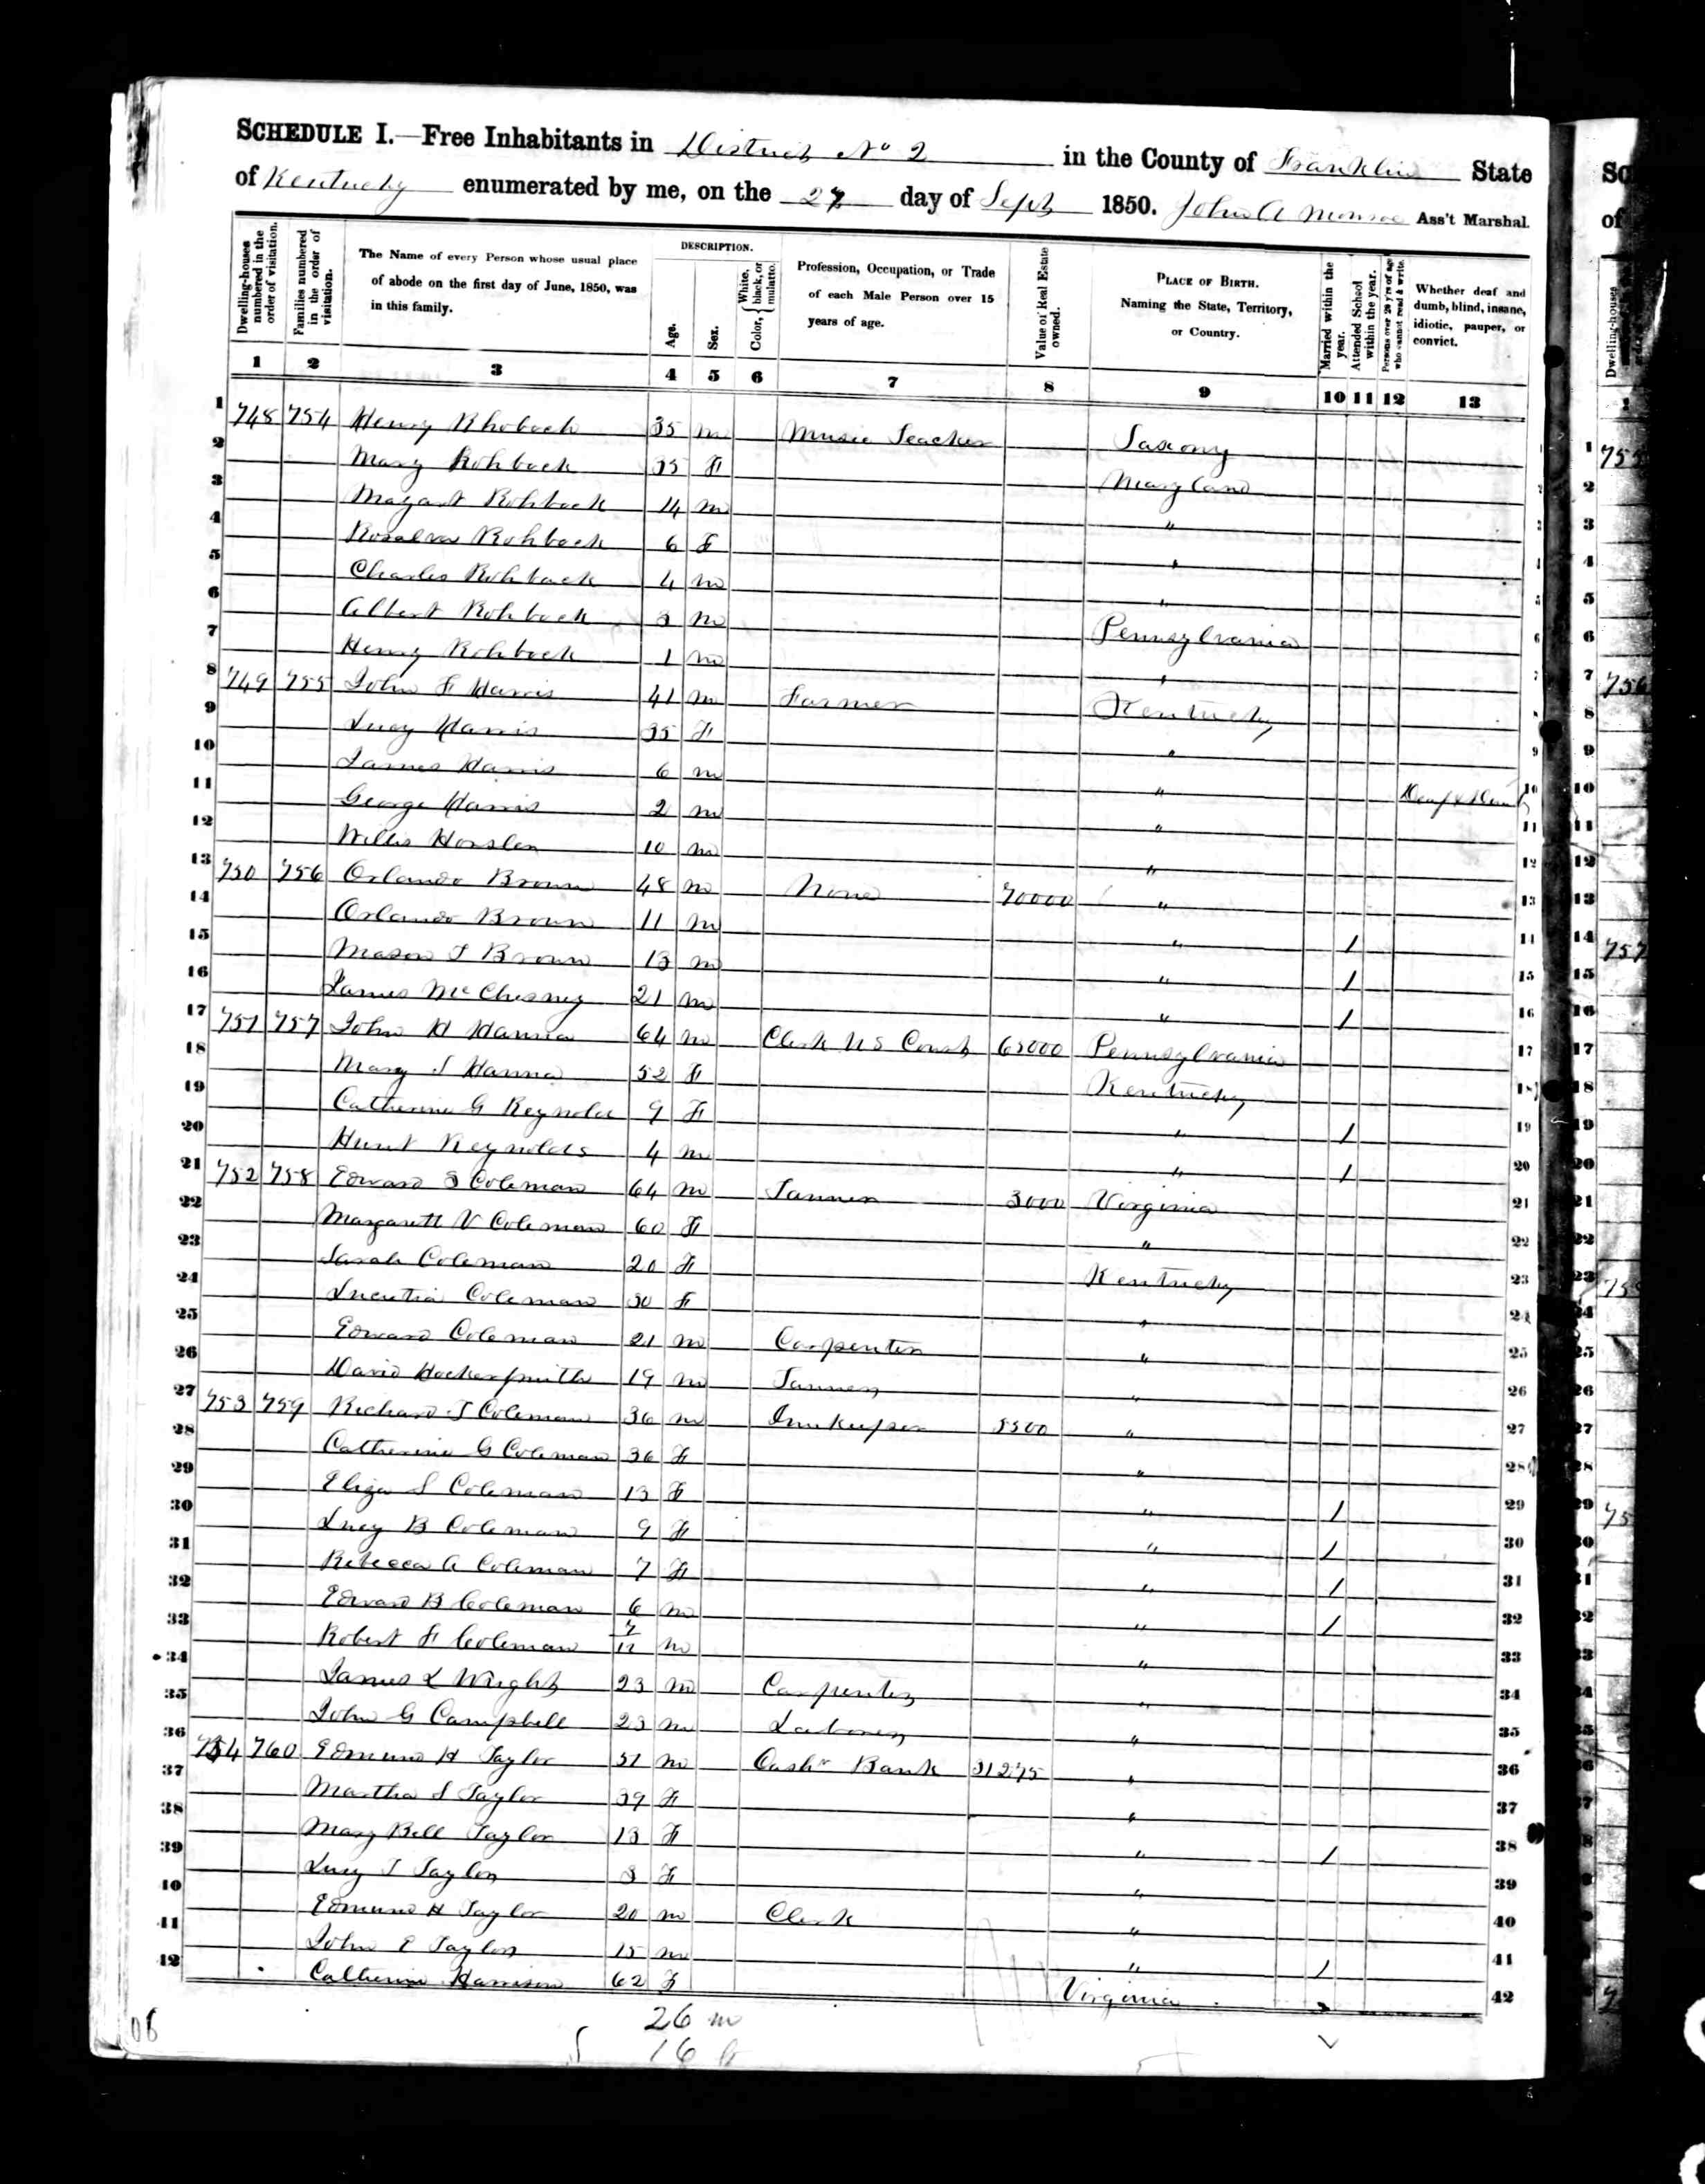 SCHEDULE I.—Free Inhabitants in District No 2 in the County of Franklin State
of Kentucky enumerated by me, on the 27 day of Sept 1850. John A Monroe Ass't Marshal.
Dwelling-houses numbered in the order of visitation.
Families numbered in the order of visitation.
The Name of every Person whose usual place of abode on the first day of June, 1850, was in this family.
DESCRIPTION.
Age.
Sex.
Color, { White, black, or mulatto.
Profession, Occupation, or Trade of each Male Person over 15 years of age.
Value of Real Estate owned.
PLACE OF BIRTH. Naming the State, Territory, or Country.
Married within the year.
Attended School within the year.
Persons over 20 y'rs of age who cannot read & write.
Whether deaf and dumb, blind, insane, idiotic, pauper, or convict.
1 2 3 4 5 6 7 8 9 10 11 12 13
1 748 754 Henry Rhoback 35 m Music Teacher Saxony 1
2 Mary Rohback 35 F Maryland 2
3 Mozart Rohback 14 m " 3
4 Rohback 6 F " 4
5 Charles Rohback 4 m " 5
6 Albert Rohback 3 m Pennsylvania 6
7 Henry Rohback 1 m " 7
8 749 755 John F Harris 41 m Farmer Kentucky 8
9 Lucy Harris 35 F " 9
10 James Harris 6 m " Deaf & Dumb 10
11 George Harris 2 m " 11
12 Willis 10 m " 12
13 750 756 Orlando Brown 48 m None 70000 " 13
14 Orlando Brown 11 m " 1 14
15 Mason T Brown 13 m " 1 15
16 James McChesney 21 m " 1 16
17 751 757 John H Hanna 64 m Clerk U S Court 65000 Pennsylvania 17
18 Mary S Hanna 52 F Kentucky 18
19 Catherine G Reynolds 9 F " 1 19
20 Hunt Reynolds 4 m " 1 20
21 752 758 Edward S Coleman 64 m Tanner 3000 Virginia 21
22 Margarett V Coleman 60 F " 22
23 Sarah Coleman 20 F Kentucky 23
24 Lucretia Coleman 30 F " 24
25 Edward Coleman 21 m Carpenter " 25
26 David Hockersmith 19 m Tanner " 26
27 753 759 Richard T Coleman 36 m Innkeeper 5500 " 27
28 Catherine G Coleman 36 F " 28
29 Eliza S Coleman 13 F " 1 29
30 Lucy B Coleman 9 F " 1 30
31 Rebecca A Coleman 7 F " 1 31
32 Edward B Coleman 6 m " 1 32
33 Robert F Coleman 7/12 m " 33
34 James L Wright 23 m Carpenter " 34
35 John G Campbell 23 m Laborer " 35
36 754 760 Edmund H Taylor 51 m Cashr Bank 31275 " 36
37 Martha S Taylor 39 F " 37
38 Mary Bell Taylor 13 F " 1 38
39 Lucy T Taylor 3 F " 39
40 Edmund H Taylor 20 m Clerk " 40
41 John E Taylor 15 m " 1 41
42 Catherine Harrison 62 F Virginia 42
26 m
16 f